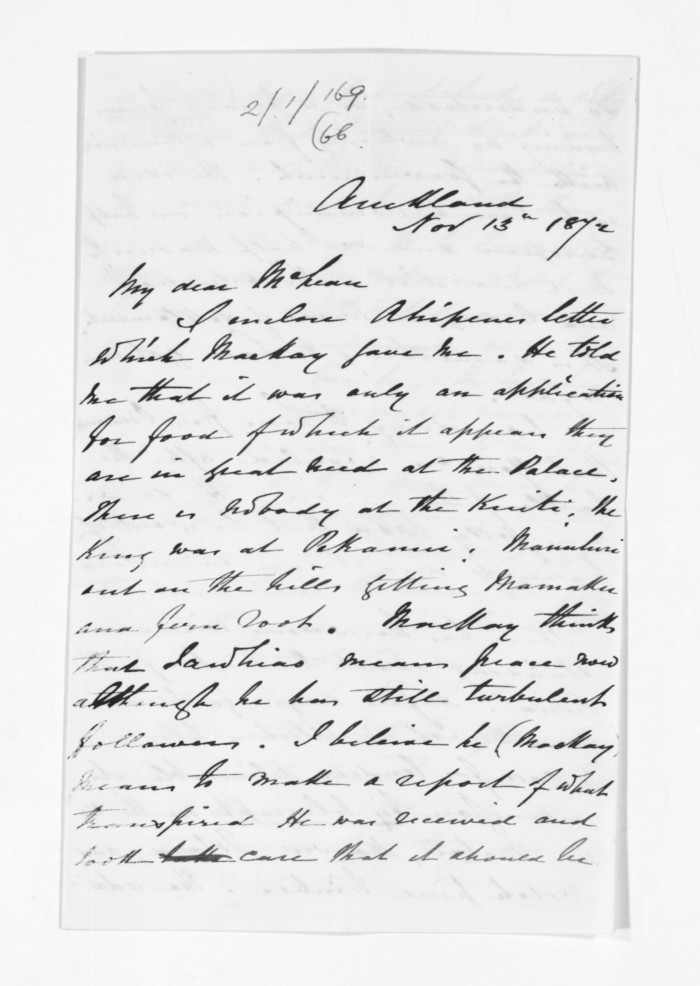 2/1/169.
(66.
Auckland
Nov 13th 1872
My dear McLean
I enclose Ahipenes letter
which Mackay gave me. He told
me that it was only an application
for food of which it appears they
are in great need at the Palace.
There is nobody at the Kuiti, the
King was at Pekanui. Manuhiri
out on the hills getting Mamaku
and fern root. MacKay thinks
that Tawhiao means peace now
although he has still turbulent
followers. I believe he (MacKay)
means to make a report of what
transpired He was received and
took care that it should be